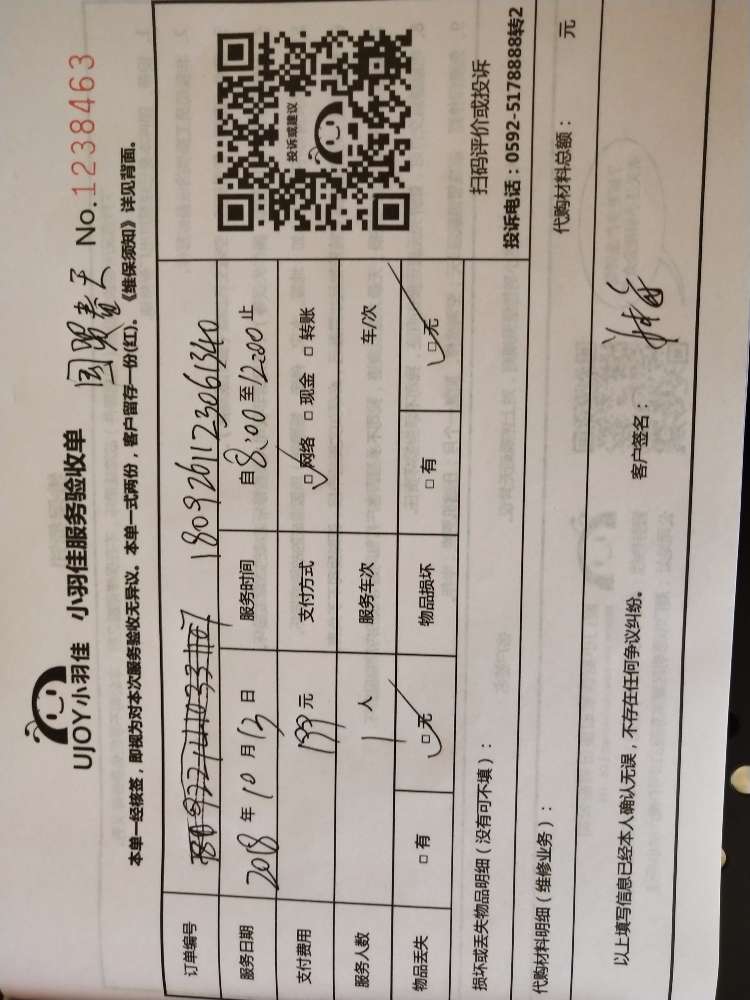 UJOY小羽佳 小羽佳服务验收单 国贸春天 No.1238463
本单一经核签，即视为对本次服务验收无异议。本单一式两份，客户留存一份(红)。《维保须知》详见背面。
订单编号 1809261123061340
服务日期 2018 年 10 月 13 日 服务时间 自 8:00 至 12:00 止
支付费用 199 元 支付方式 □ 网络 □ 现金 □ 转账
服务人数 1 人 服务车次 车/次
物品丢失 □ 有 □ 无 物品损坏 □ 有 □ 无
投诉或建议
扫码评价或投诉
投诉电话：0592-5178888转2
损坏或丢失物品明细（没有可不填）：
代购材料明细（维修业务）： 代购材料总额： 元
以上填写信息已经本人确认无误，不存在任何争议纠纷。 客户签名：